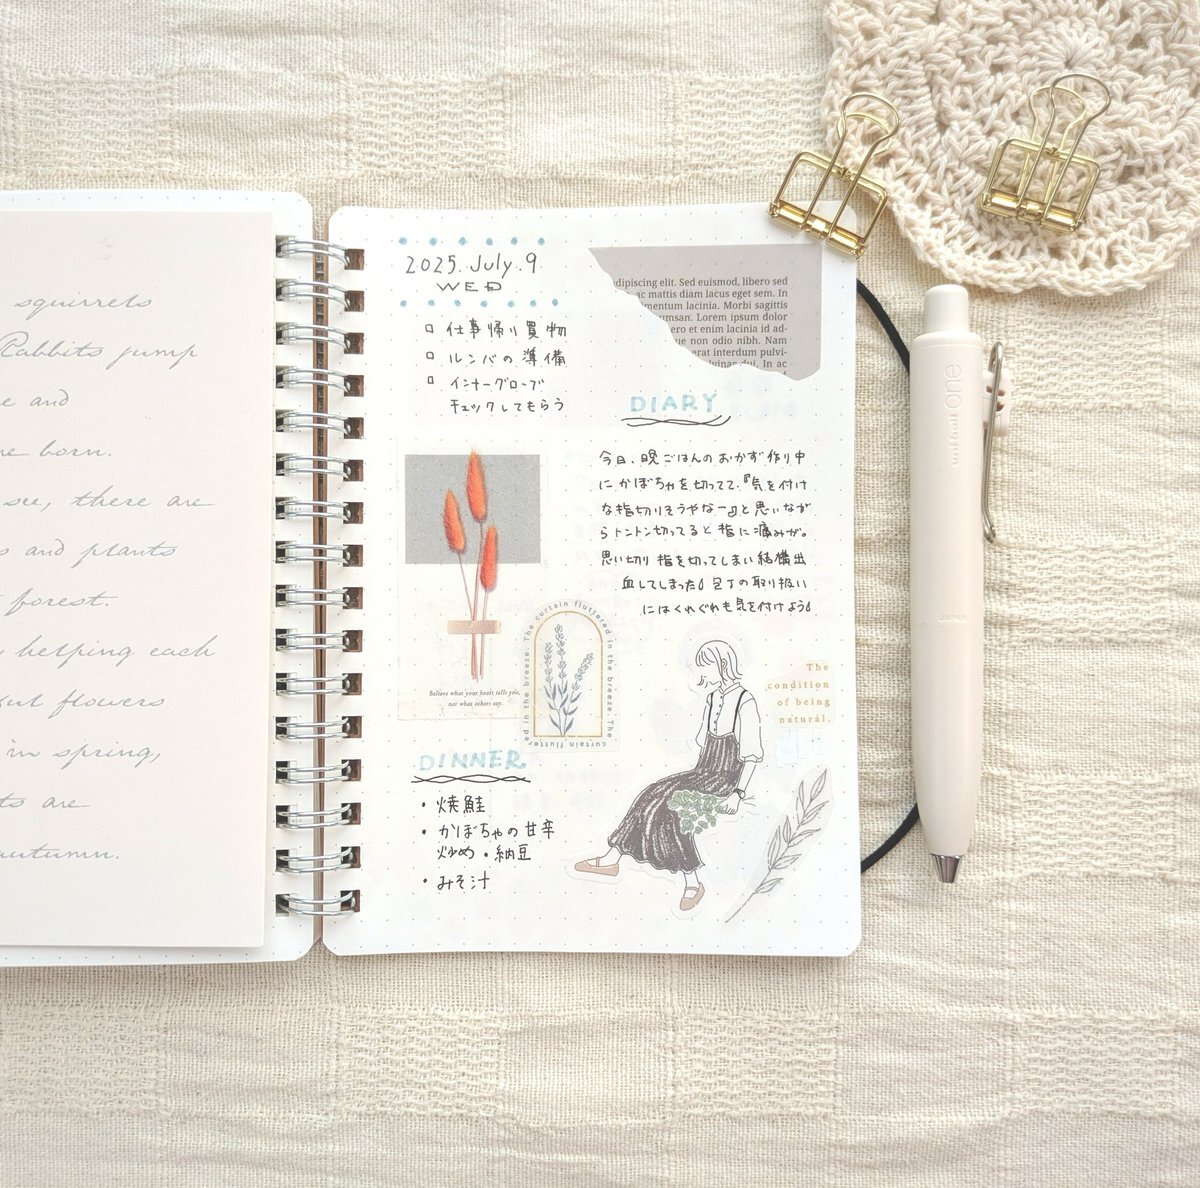 squirrels
Rabbits jump
and
born.
see, there are
and plants
forest.
helping each
flowers
in spring,
are
autumn.
2025. July. 9
WED
仕事帰り買物
ルンバの準備
インナーグローブ
チェックしてもらう
adipiscing elit. Sed euismod, libero sed
ac mattis diam lacus eget sem. In
elementum lacinia. Morbi sagittis
Lorem ipsum dolor
et enim lacinia id ad-
non odio nibh. Nam
erat interdum pulvi-
dui. In ac
DIARY
今日、晩ごはんのおかず作り中
にかぼちゃを切ってて、『気を付け
な指切りそうやなー』と思いなが
らトントン切ってると指に痛みが。
思い切り指を切ってしまい結構出
血してしまった! 包丁の取り扱い
にはくれぐれも気を付けよう!
Believe what your heart tells you,
not what others say.
The curtain fluttered in the breeze. The curtain fluttered in the breeze.
The
condition
of being
natural.
DINNER
・焼鮭
・かぼちゃの甘辛
炒め ・納豆
・みそ汁
uni-ball one
JAPAN